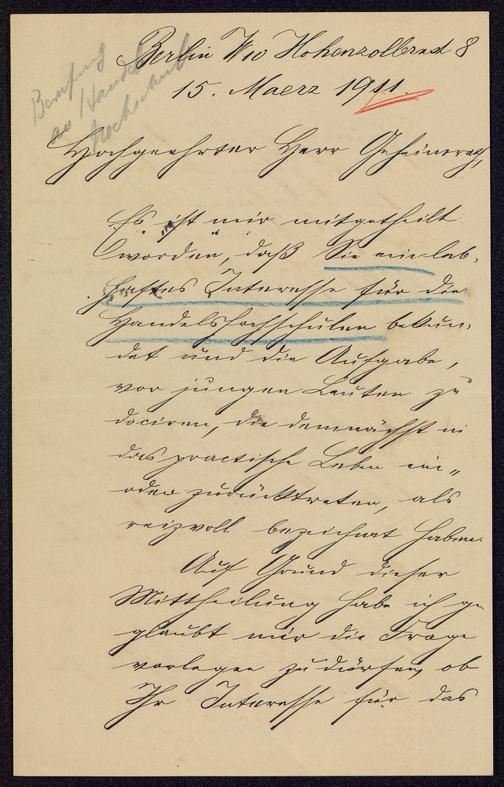 Berlin W10 Hohenzollernst 8
15. Maerz 1911.
Berufung
an Handels
hochschule
Hochgeehrter Herr Geheimrath,
Es ist mir mitgetheilt
worden, daß Sie ein leb-
haftes Interesse für die
Handelshochschulen bekun-
det und die Aufgabe,
vor jungen Leuten zu
dociren, die demnächst in
das practische Leben ein-
oder zurücktreten, als
reizvoll bezeichnet haben.
Auf Grund dieser
Mittheilung habe ich ge-
glaubt mir die Frage
vorlegen zu dürfen, ob
Ihr Interesse für das